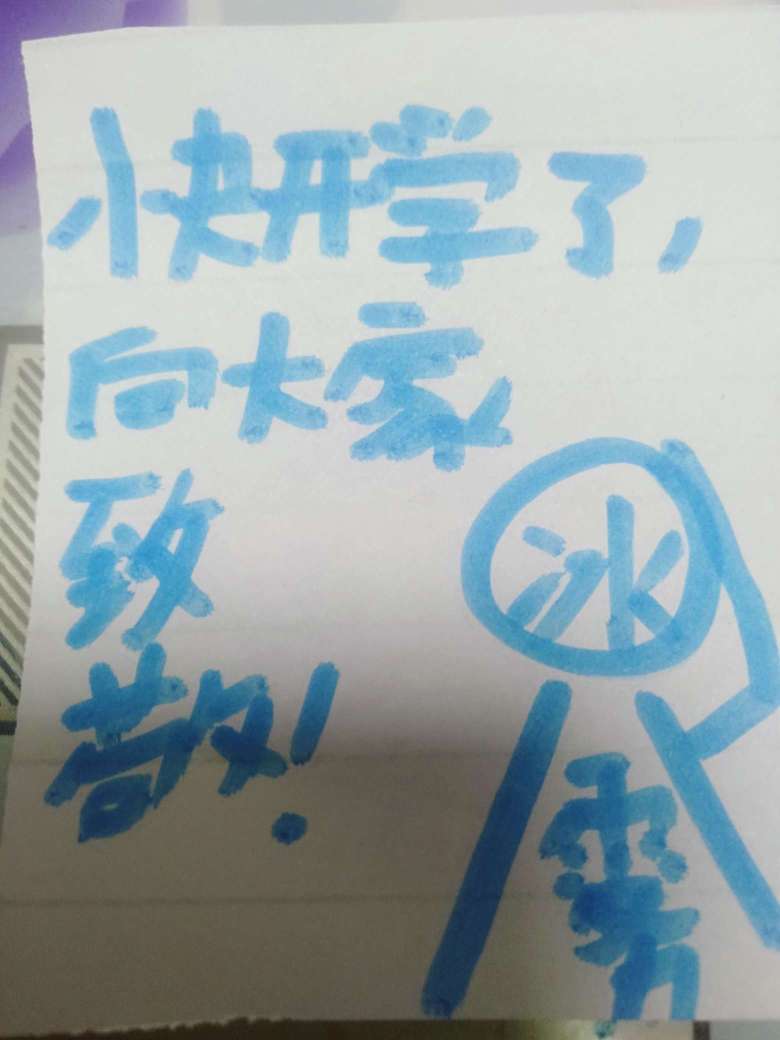 快开学了,
向大家
致
敬!
冰
雾